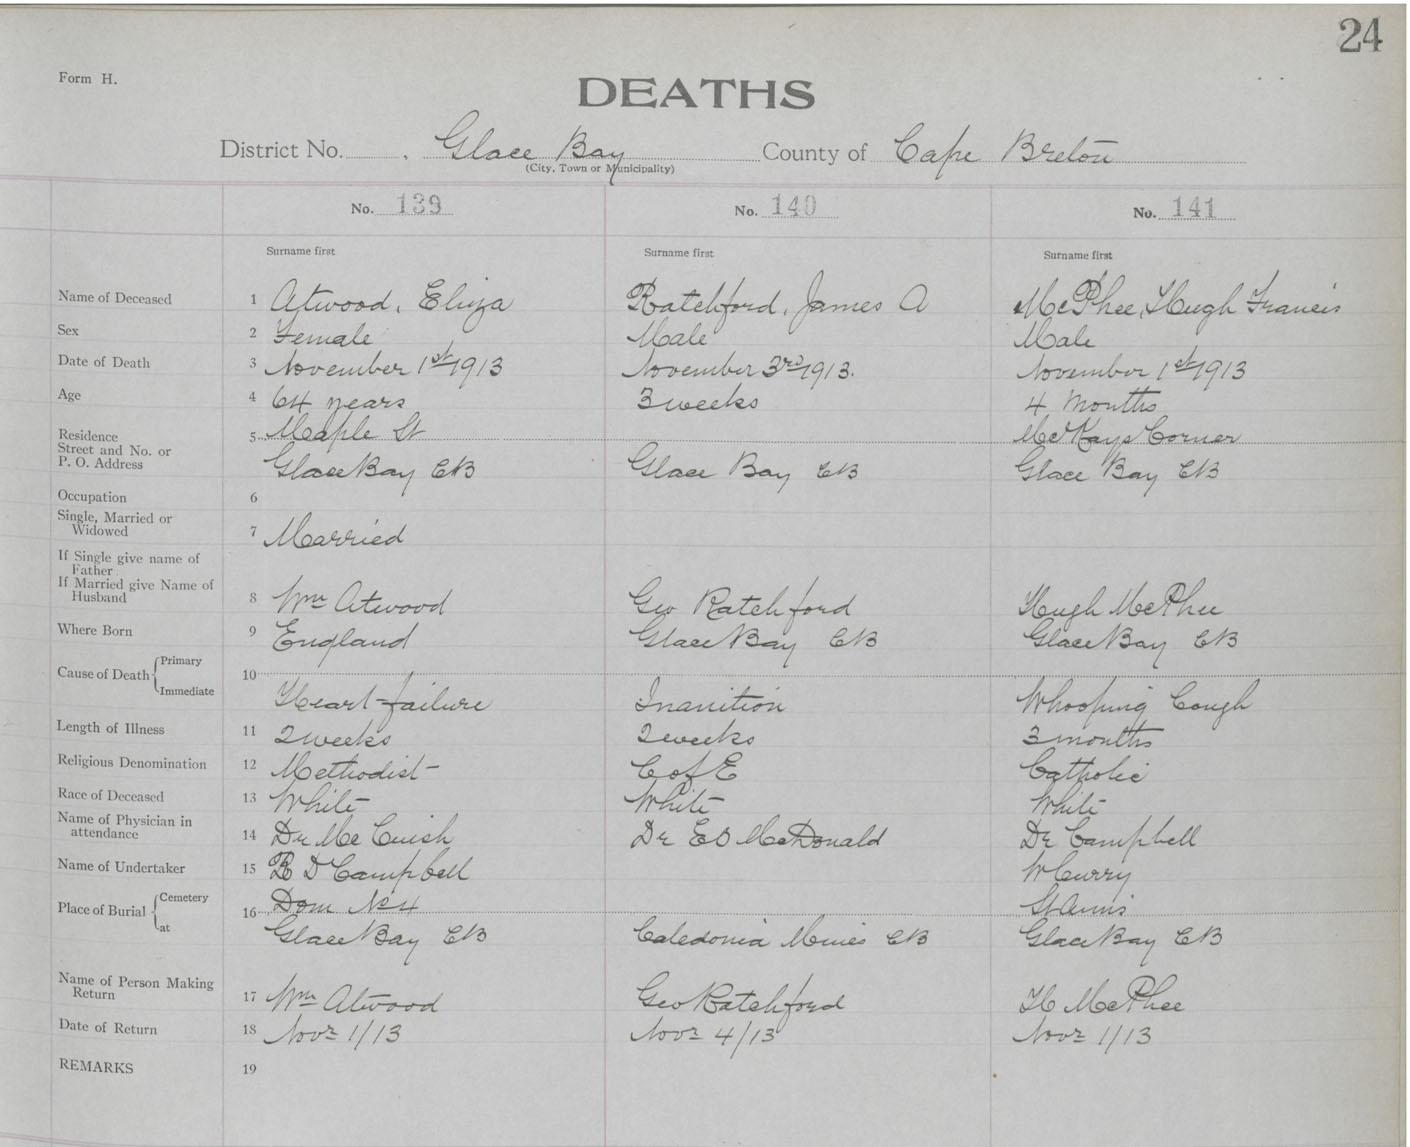 24
Form H.
DEATHS
District No. . Glace Bay County of Cape Breton
(City, Town or Municipality)
No. 139 No. 140 No. 141
Surname first Surname first Surname first
Name of Deceased 1 Atwood, Eliza Ratchford, James A McPhee, Hugh Francis
Sex 2 Female Male Male
Date of Death 3 November 1st 1913 November 3rd 1913. November 1st 1913
Age 4 64 years 3 weeks 4 Months
Residence 5 Maple St McKays Corner
Street and No. or
P. O. Address Glace Bay CB Glace Bay CB Glace Bay CB
Occupation 6
Single, Married or
Widowed 7 Married
If Single give name of
Father
If Married give Name of
Husband 8 Wm Atwood Geo Ratchford Hugh McPhee
Where Born 9 England Glace Bay CB Glace Bay CB
Cause of Death Primary 10
Immediate Heart failure Inanition Whooping Cough
Length of Illness 11 2 weeks 2 weeks 3 months
Religious Denomination 12 Methodist C of E Catholic
Race of Deceased 13 White White White
Name of Physician in
attendance 14 Dr McCuish Dr E O McDonald Dr Campbell
Name of Undertaker 15 B D Campbell W Curry
Place of Burial Cemetery 16 Dom No 4 St Anns
at Glace Bay CB Caledonia Mines CB Glace Bay CB
Name of Person Making
Return 17 Wm Atwood Geo Ratchford H McPhee
Date of Return 18 Novr 1/13 Novr 4/13 Novr 1/13
REMARKS 19